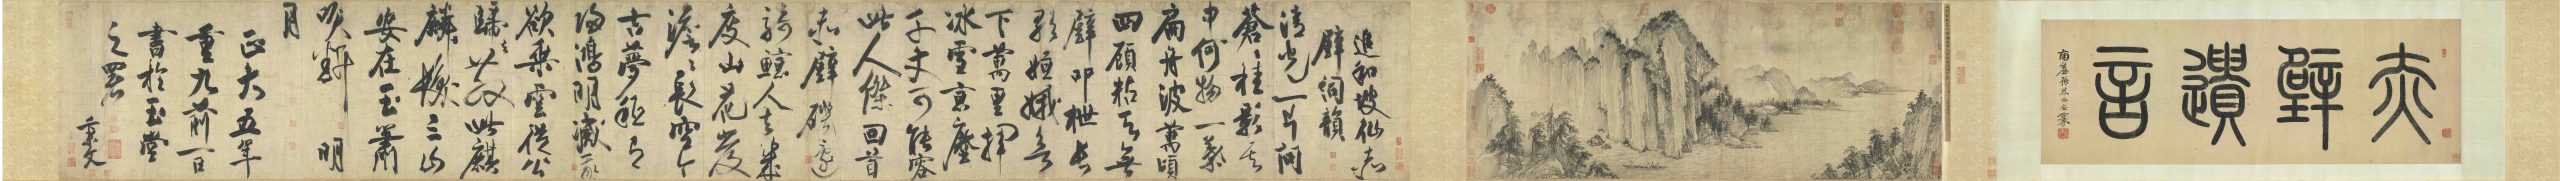 赤壁遺音
追和坡仙赤
壁詞韻
清光一片問
蒼〻桂影其
中何物一葉
扁舟波萬頃
四顧粘天無
壁叩枻長
歌姮娥欲
下萬里揮
冰雪京塵
千丈可能容
此人傑回首
赤壁磯邊
騎鯨人去幾
度山花發
澹〻長空今
古夢秖有
歸鴻明滅我
欲乘雲從公
歸去散此麒
麟髮三山
安在玉簫
吹斷明
月
正大五年
重九前一日
書於玉堂
之署
秉文